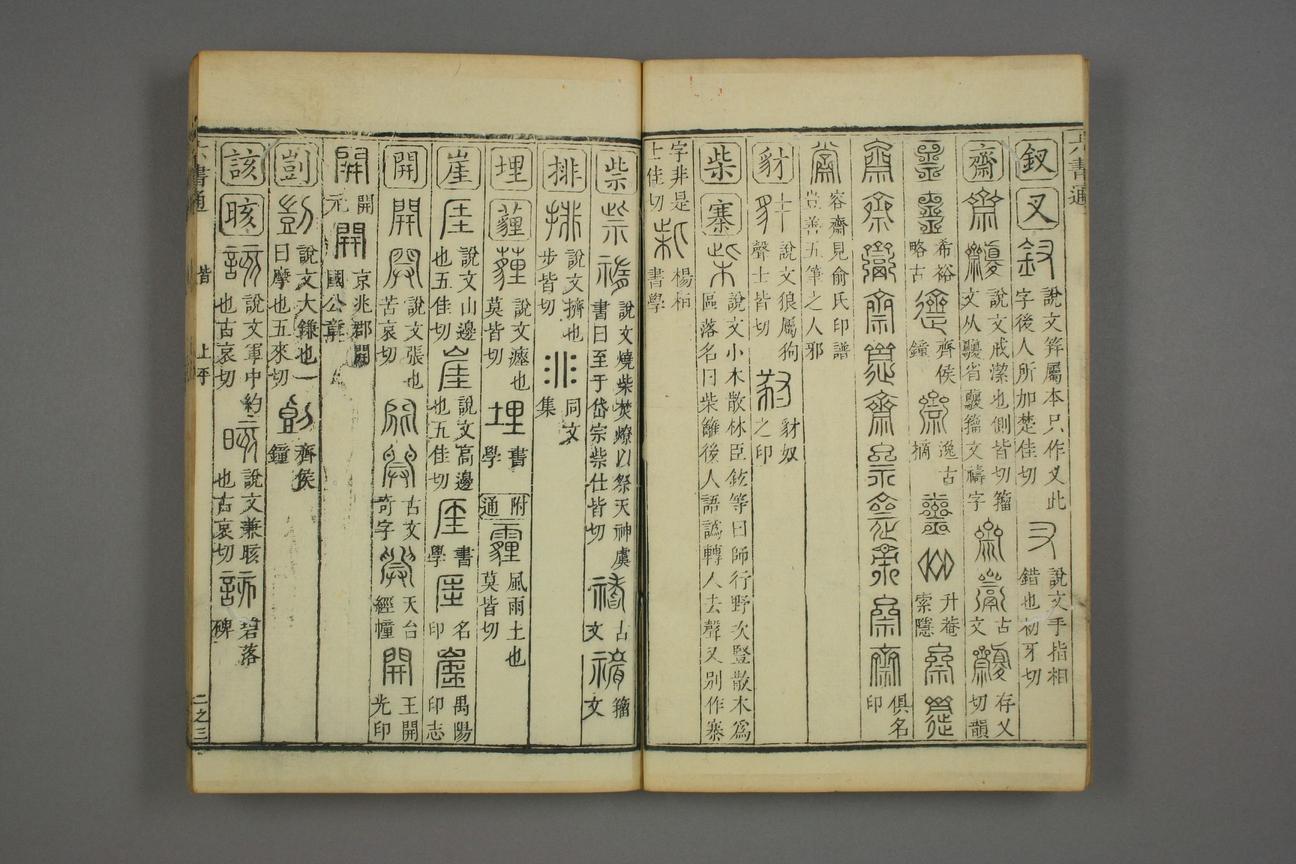 六書通
釵 叉 釵 說文笄屬本只作叉此字後人所加楚佳切 說文手指相錯也初牙切
齋 說文戒潔也側皆切籀文从𪗉省𪗉籀文禱字 古文 存乂切韻
希裕略古 齊侯鐘 逸古摘 升菴索隱
俱名印
容齋見俞氏印譜豈善五筆之人邪
豺 說文狼屬狗聲士皆切 豺奴之印
柴 寨 說文小木散材臣鉉等曰師行野次豎散木為區落名曰柴籬後人語譌轉入去聲又別作寨
字非是士佳切 楊桓書學
祡 說文燒柴焚燎以祭天神虞書曰至于岱宗祡仕皆切 古文 籀文
排 說文擠也步皆切 同文集
埋 薶 說文瘞也莫皆切 埋 書學 附通 霾 風雨土也莫皆切
崖 說文山邊也五佳切 說文高邊也五佳切 書學 名印 禺陽印志
開 說文張也苦哀切 古文奇字 天台經幢 王開光印
開元 京兆郡開國公章
剴 說文大鎌也一曰摩也五來切 齊侯鐘
該 晐 說文軍中約也古哀切 說文兼晐也古哀切 碧落碑
六書通 皆 上平 二之三